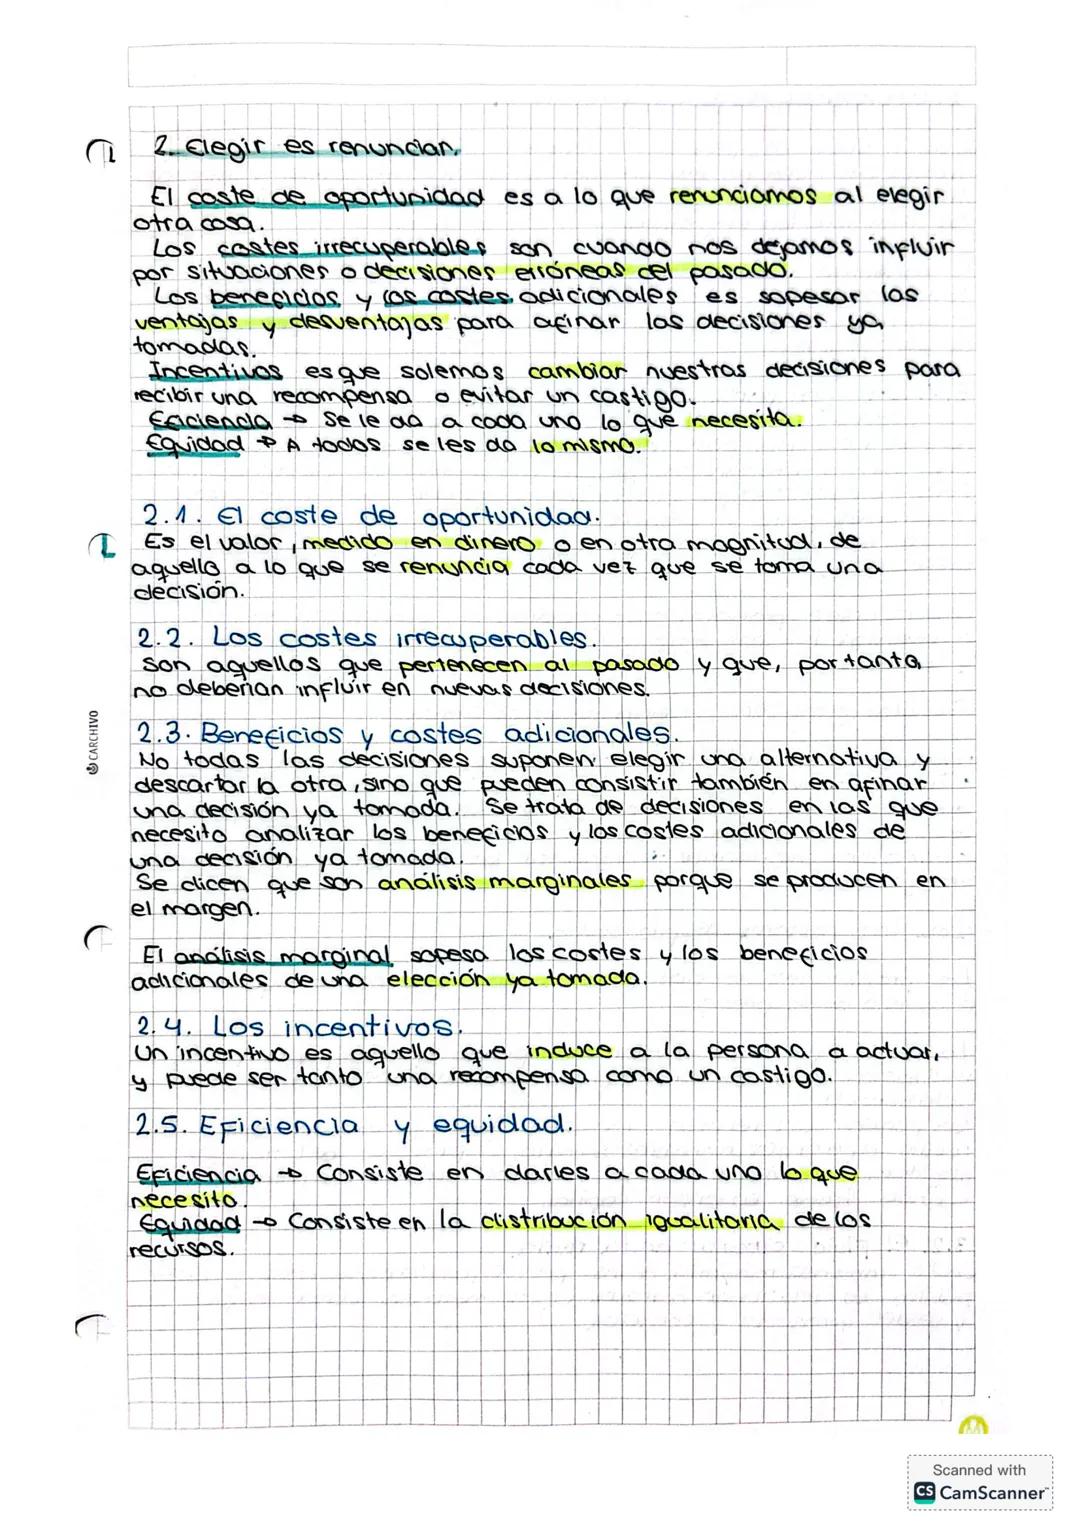 2. Elegir es renunciar.
El coste de oportunidad es a lo que renunciamos al elegir
otra cosa.
Los costes irrecuperables son cuando nos dejamos influir
por situaciones o decisiones erróneas del pasado.
Los beneficios y los costes adicionales es sopesar las
ventajas y desventajas para afinar las decisiones ya
tomadas.
Incentivos es que solemos cambiar nuestras decisiones para
recibir una recompensa o evitar un castigo.
Eficiencia → Se le da a cada uno lo que necesita.
Equidad → A todos se les da lo mismo.
2.1. El coste de oportunidad.
Es el valor, medido en dinero o en otra magnitud, de
aquello a lo que se renuncia cada vez que se toma una
decisión.
2.2. Los costes irrecuperables.
Son aquellos que pertenecen al pasado y que, por tanto,
no deberían influir en nuevas decisiones.
2.3. Beneficios y costes adicionales.
No todas las decisiones suponen elegir una alternativa y
descartar la otra, sino que pueden consistir también en afinar
una decisión ya tomada. Se trata de decisiones en las que
necesito analizar los beneficios y los costes adicionales de
una decisión ya tomada.
Se dicen que son análisis marginales porque se producen en
el margen.
El análisis marginal sopesa los costes y los beneficios
adicionales de una elección ya tomada.
2.4. Los incentivos.
Un incentivo es aquello que induce a la persona a actuar,
y puede ser tanto una recompensa como un castigo.
2.5. Eficiencia y equidad.
Eficiencia → Consiste en darles a cada uno lo que
necesita.
Equidad → Consiste en la distribución igualitaria de los
recursos.
CARCHIVO
Scanned with
CS CamScanner